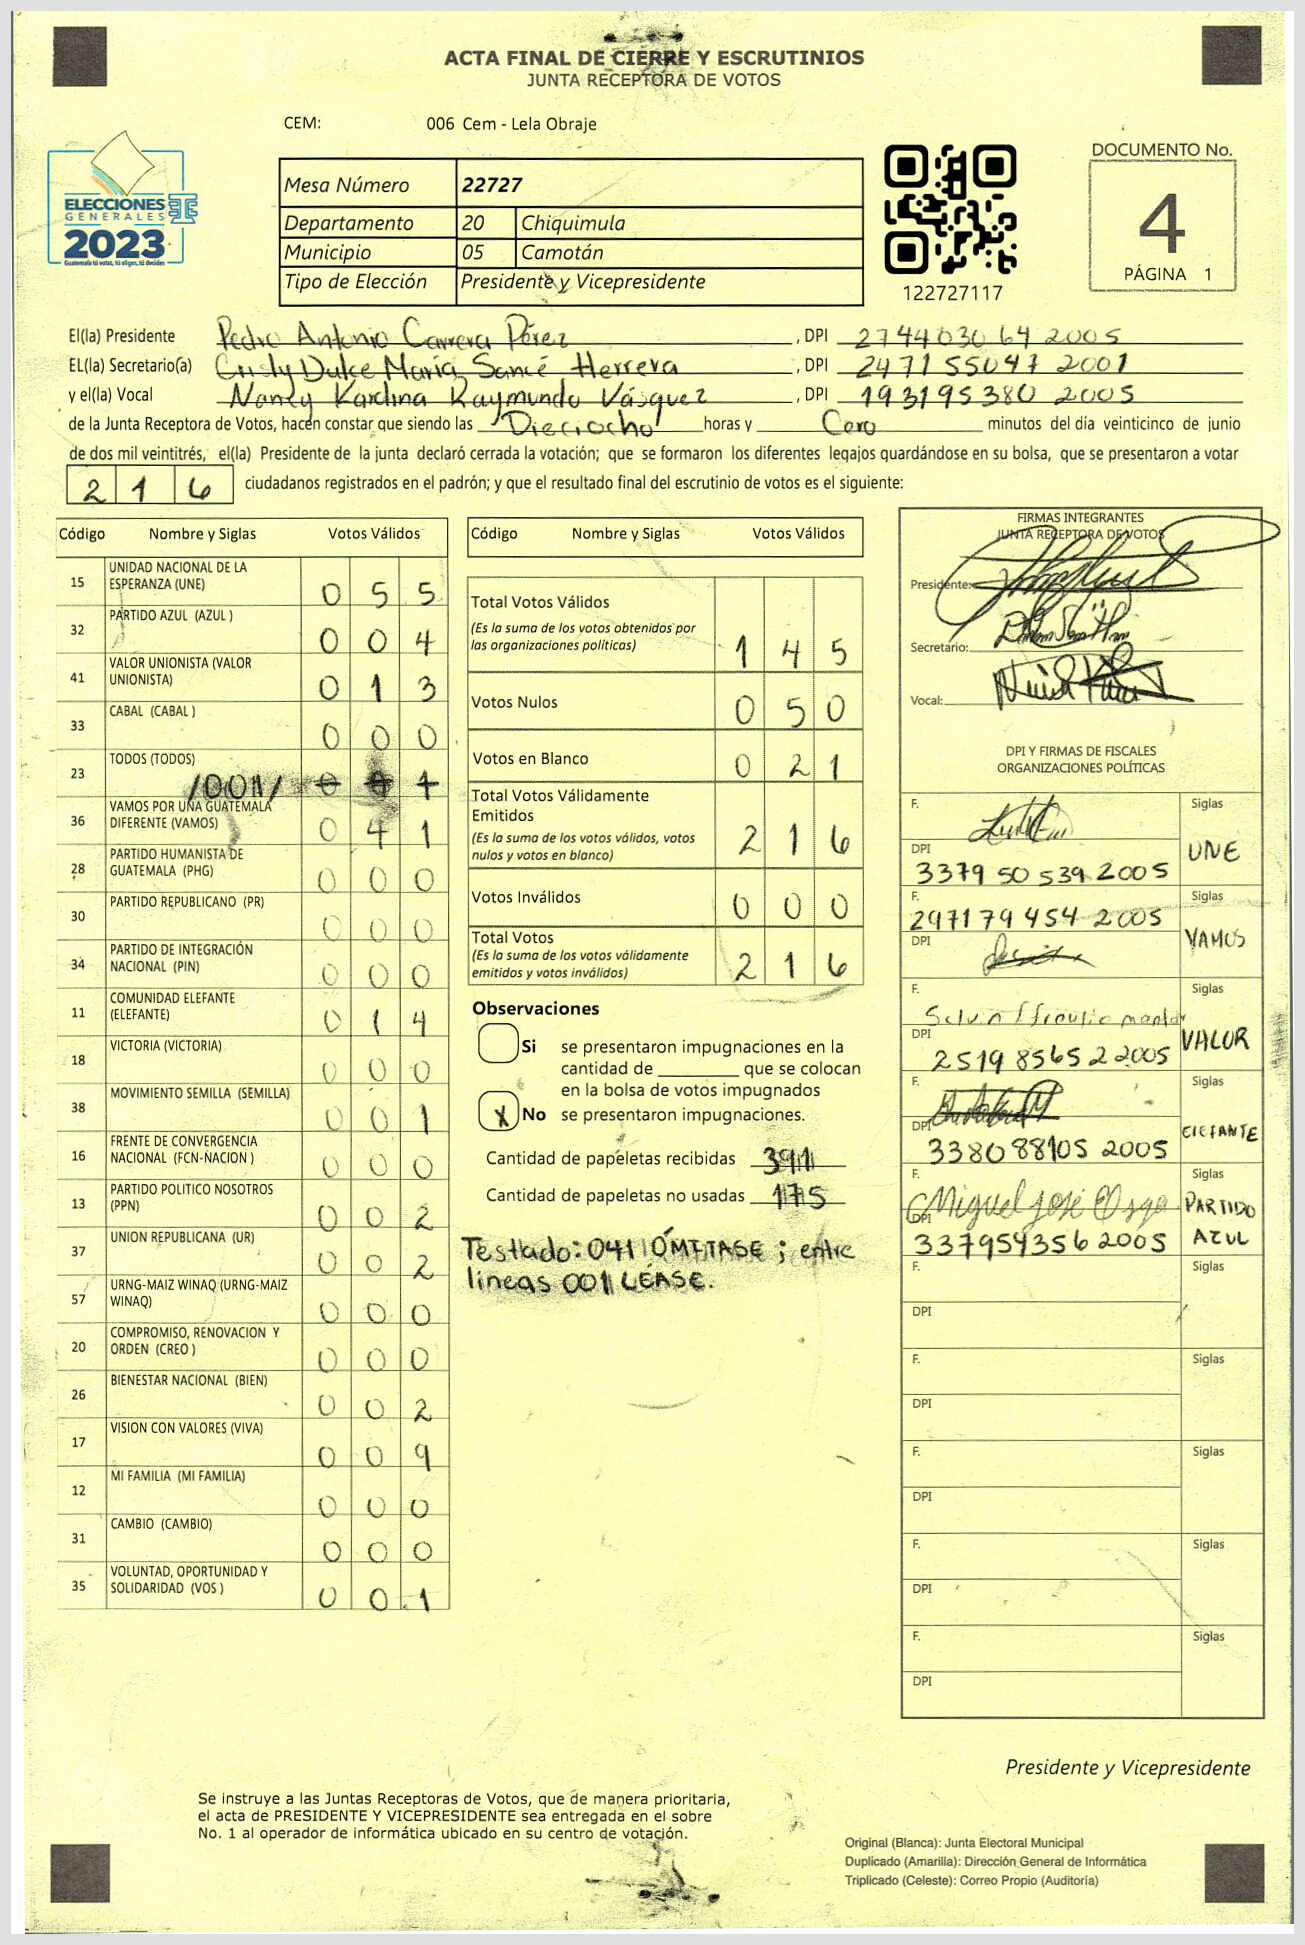 ACTA FINAL DE CIERRE Y ESCRUTINIOS
JUNTA RECEPTORA DE VOTOS
CEM: 006 Cem - Lela Obraje
ELECCIONES
GENERALES
2023
Guatemala tú votas, tú eliges, tú decides
Mesa Número 22727
Departamento 20 Chiquimula
Municipio 05 Camotán
Tipo de Elección Presidente y Vicepresidente
122727117
DOCUMENTO No.
4
PÁGINA 1
El(la) Presidente Pedro Antonio Carrera Pérez, DPI 2744030642005
EL(la) Secretario(a) Cristy Dulce María Sancé Herrera, DPI 2471550472001
y el(la) Vocal Nancy Karolina Raymundo Vásquez, DPI 1931953802005
de la Junta Receptora de Votos, hacen constar que siendo las Dieciocho horas y Cero minutos del día veinticinco de junio
de dos mil veintitrés, el(la) Presidente de la junta declaró cerrada la votación; que se formaron los diferentes legajos quardándose en su bolsa, que se presentaron a votar
2 1 6 ciudadanos registrados en el padrón; y que el resultado final del escrutinio de votos es el siguiente:
Código Nombre y Siglas Votos Válidos
15 UNIDAD NACIONAL DE LA ESPERANZA (UNE) 0 5 5
32 PARTIDO AZUL (AZUL ) 0 0 4
41 VALOR UNIONISTA (VALOR UNIONISTA) 0 1 3
33 CABAL (CABAL ) 0 0 0
23 TODOS (TODOS) /001/ 1
36 VAMOS POR UNA GUATEMALA DIFERENTE (VAMOS) 0 4 1
28 PARTIDO HUMANISTA DE GUATEMALA (PHG) 0 0 0
30 PARTIDO REPUBLICANO (PR) 0 0 0
34 PARTIDO DE INTEGRACIÓN NACIONAL (PIN) 0 0 0
11 COMUNIDAD ELEFANTE (ELEFANTE) 0 1 4
18 VICTORIA (VICTORIA) 0 0 0
38 MOVIMIENTO SEMILLA (SEMILLA) 0 0 1
16 FRENTE DE CONVERGENCIA NACIONAL (FCN-NACION ) 0 0 0
13 PARTIDO POLITICO NOSOTROS (PPN) 0 0 2
37 UNION REPUBLICANA (UR) 0 0 2
57 URNG-MAIZ WINAQ (URNG-MAIZ WINAQ) 0 0 0
20 COMPROMISO, RENOVACION Y ORDEN (CREO ) 0 0 0
26 BIENESTAR NACIONAL (BIEN) 0 0 2
17 VISION CON VALORES (VIVA) 0 0 9
12 MI FAMILIA (MI FAMILIA) 0 0 0
31 CAMBIO (CAMBIO) 0 0 0
35 VOLUNTAD, OPORTUNIDAD Y SOLIDARIDAD (VOS ) 0 0 1
Código Nombre y Siglas Votos Válidos
Total Votos Válidos
(Es la suma de los votos obtenidos por
las organizaciones políticas) 1 4 5
Votos Nulos 0 5 0
Votos en Blanco 0 2 1
Total Votos Válidamente
Emitidos
(Es la suma de los votos válidos, votos
nulos y votos en blanco) 2 1 6
Votos Inválidos 0 0 0
Total Votos
(Es la suma de los votos válidamente
emitidos y votos inválidos) 2 1 6
Observaciones
Si se presentaron impugnaciones en la
cantidad de ________ que se colocan
en la bolsa de votos impugnados
X No se presentaron impugnaciones.
Cantidad de papeletas recibidas 391
Cantidad de papeletas no usadas 175
Testado: 041 OMITASE ; entre
líneas 001 LÉASE.
FIRMAS INTEGRANTES
JUNTA RECEPTORA DE VOTOS
Presidente:
Secretario:
Vocal:
DPI Y FIRMAS DE FISCALES
ORGANIZACIONES POLÍTICAS
F. Siglas
DPI 3379505392005 UNE
F. 2971794542005 Siglas
DPI VAMOS
F. Siglas
DPI 2519856522005 VALOR
F. Siglas
DPI 3380881052005 ElEFANTE
F. Miguel José Siglas
DPI 3379543562005 PARTIDO AZUL
F. Siglas
DPI
F. Siglas
DPI
F. Siglas
DPI
F. Siglas
DPI
F. Siglas
DPI
Presidente y Vicepresidente
Se instruye a las Juntas Receptoras de Votos, que de manera prioritaria,
el acta de PRESIDENTE Y VICEPRESIDENTE sea entregada en el sobre
No. 1 al operador de informática ubicado en su centro de votación.
Original (Blanca): Junta Electoral Municipal
Duplicado (Amarilla): Dirección General de Informática
Triplicado (Celeste): Correo Propio (Auditoría)